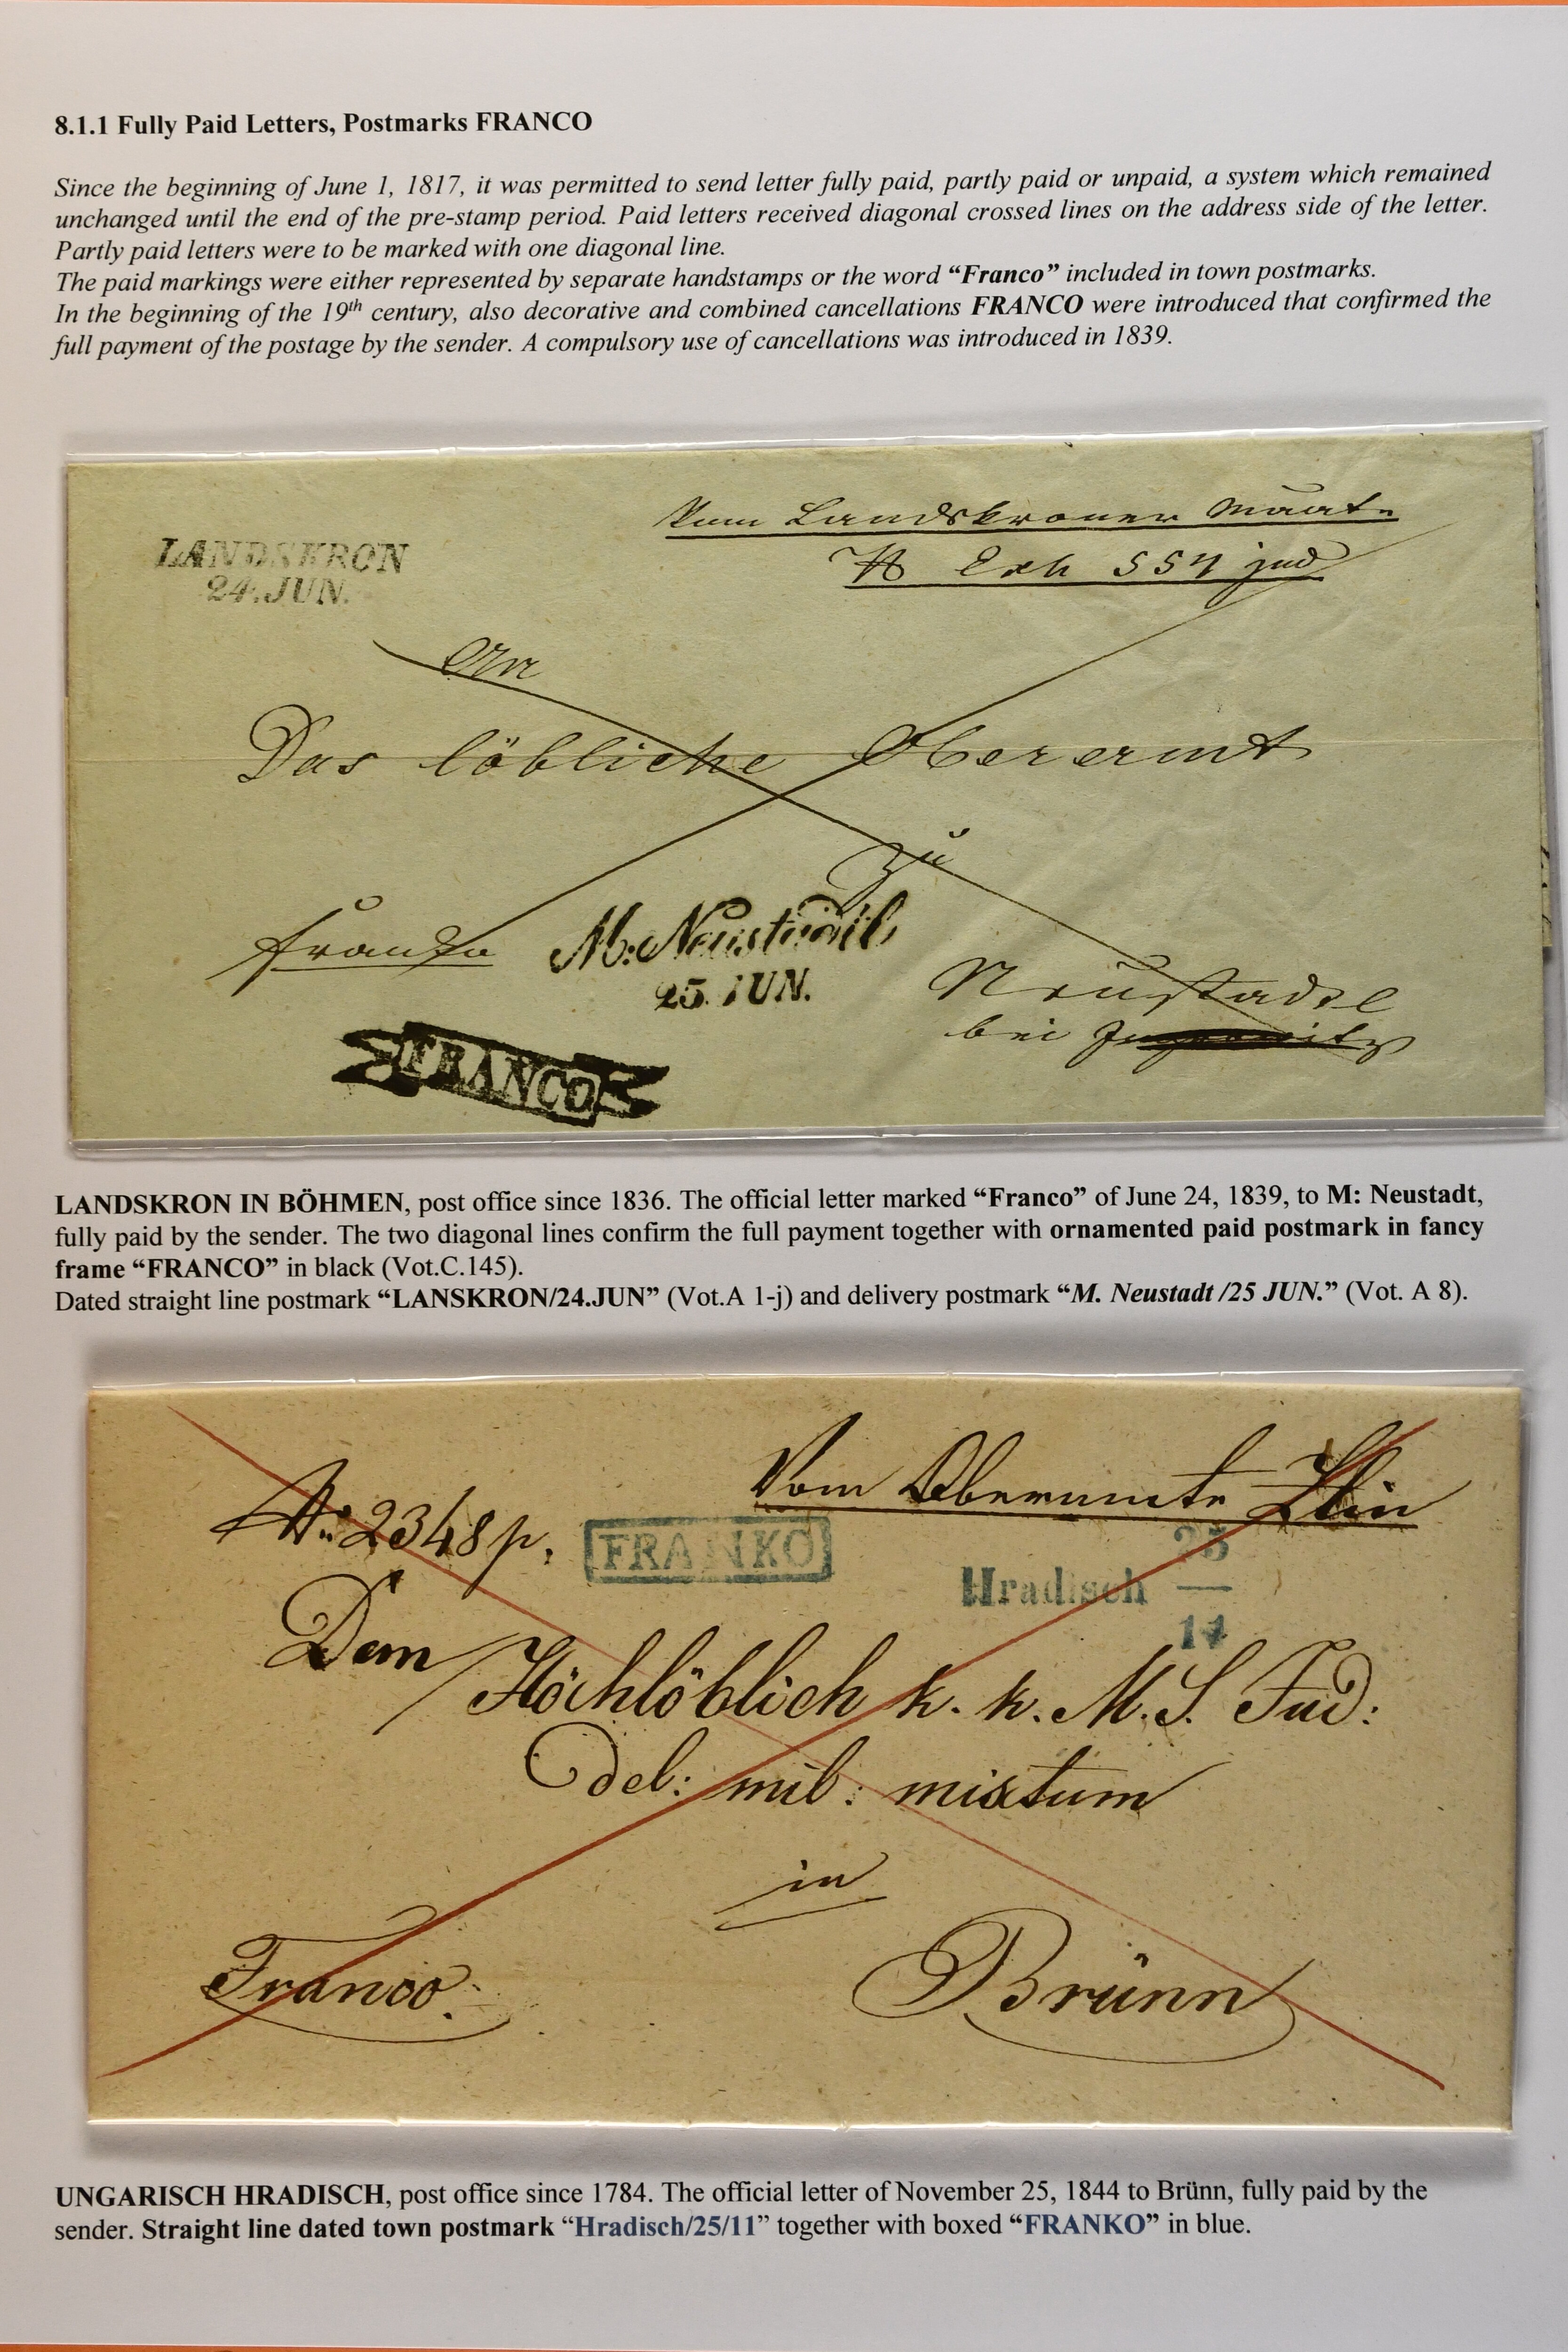 8.1.1 Fully Paid Letters, Postmarks FRANCO
Since the beginning of June 1, 1817, it was permitted to send letter fully paid, partly paid or unpaid, a system which remained
unchanged until the end of the pre-stamp period. Paid letters received diagonal crossed lines on the address side of the letter.
Partly paid letters were to be marked with one diagonal line.
The paid markings were either represented by separate handstamps or the word “Franco” included in town postmarks.
In the beginning of the 19th century, also decorative and combined cancellations FRANCO were introduced that confirmed the
full payment of the postage by the sender. A compulsory use of cancellations was introduced in 1839.
Vom Landskroner
LANDSKRON
24.JUN.
An
Das löbliche Oberamt
zu
franko
M: Neustadtl
25. JUN.
Neustadtl
bei
FRANCO
LANDSKRON IN BÖHMEN, post office since 1836. The official letter marked “Franco” of June 24, 1839, to M: Neustadt,
fully paid by the sender. The two diagonal lines confirm the full payment together with ornamented paid postmark in fancy
frame “FRANCO” in black (Vot.C.145).
Dated straight line postmark “LANSKRON/24.JUN” (Vot.A 1-j) and delivery postmark “M. Neustadt /25 JUN.” (Vot. A 8).
Vom Oberamte Zlin
No: 2348 p.
FRANKO
Hradisch 25
11
Dem
Höchlöblich k. k. M. S. Jud:
del: mil: mixtum
in
Franco.
Brünn
UNGARISCH HRADISCH, post office since 1784. The official letter of November 25, 1844 to Brünn, fully paid by the
sender. Straight line dated town postmark “Hradisch/25/11” together with boxed “FRANKO” in blue.